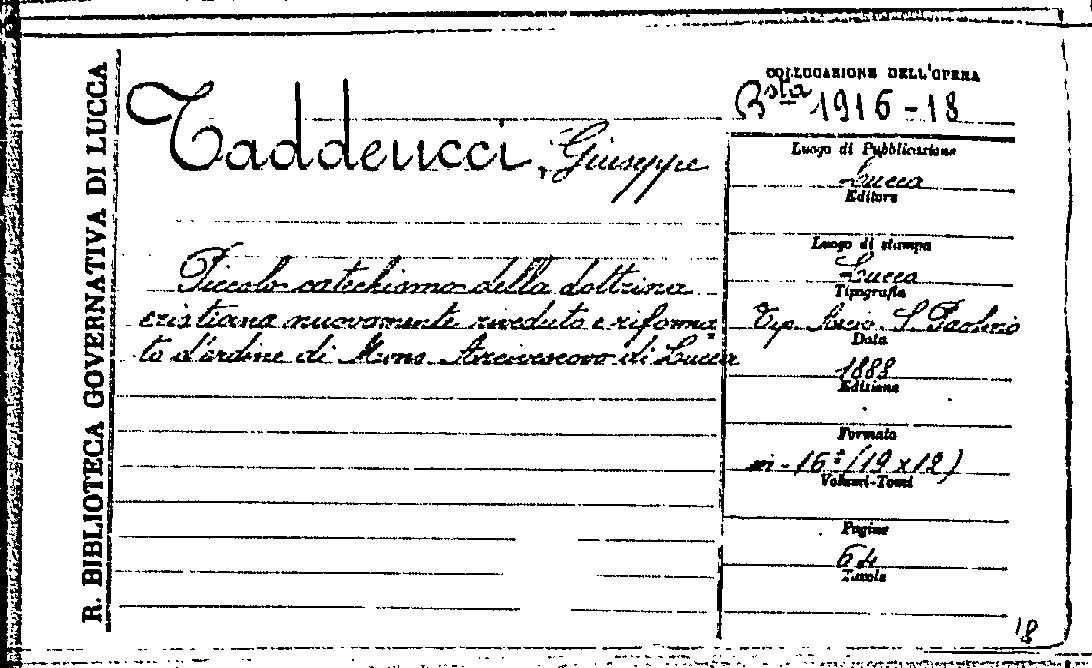 R. BIBLIOTECA GOVERNATIVA DI LUCCA
Taddeucci, Giuseppe
Piccolo catechismo della dottrina
cristiana nuovamente riveduto e riforma
to d'ordine di Mons. Arcivescovo di Lucca
COLLOCAZIONE DELL'OPERA
Bsta 1916-18
Luogo di Pubblicazione
Lucca
Editore
Luogo di stampa
Lucca
Tipografia
Tip. Arciv. S. Paolino
Data
1888
Edizione
Formato
in-16º (19x12)
Volumi-Tomi
Pagine
64
Tavole
18